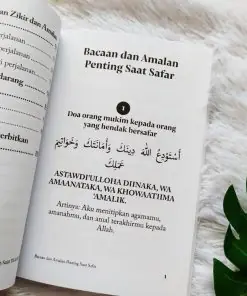 an Zikir dan Amalan
perjalanan
perjalanan
i perjalanan
darang
terbitkan
Bacaan dan Amalan
Penting Saat Safar
1
Doa orang mukim kepada orang
yang hendak bersafar
أَسْتَوْدِعُ اللَّهَ دِينَكَ وَأَمَانَتَكَ وَخَوَاتِيْمَ
عَمَلِكَ
ASTAWDI'ULLOHA DIINAKA, WA
AMAANATAKA, WA KHOWAATIIMA
'AMALIK.
Artinya: Aku menitipkan agamamu,
amanahmu, dan amal terakhirmu kepada
Allah.
Bacaan dan Amalan Penting Saat Safar
1